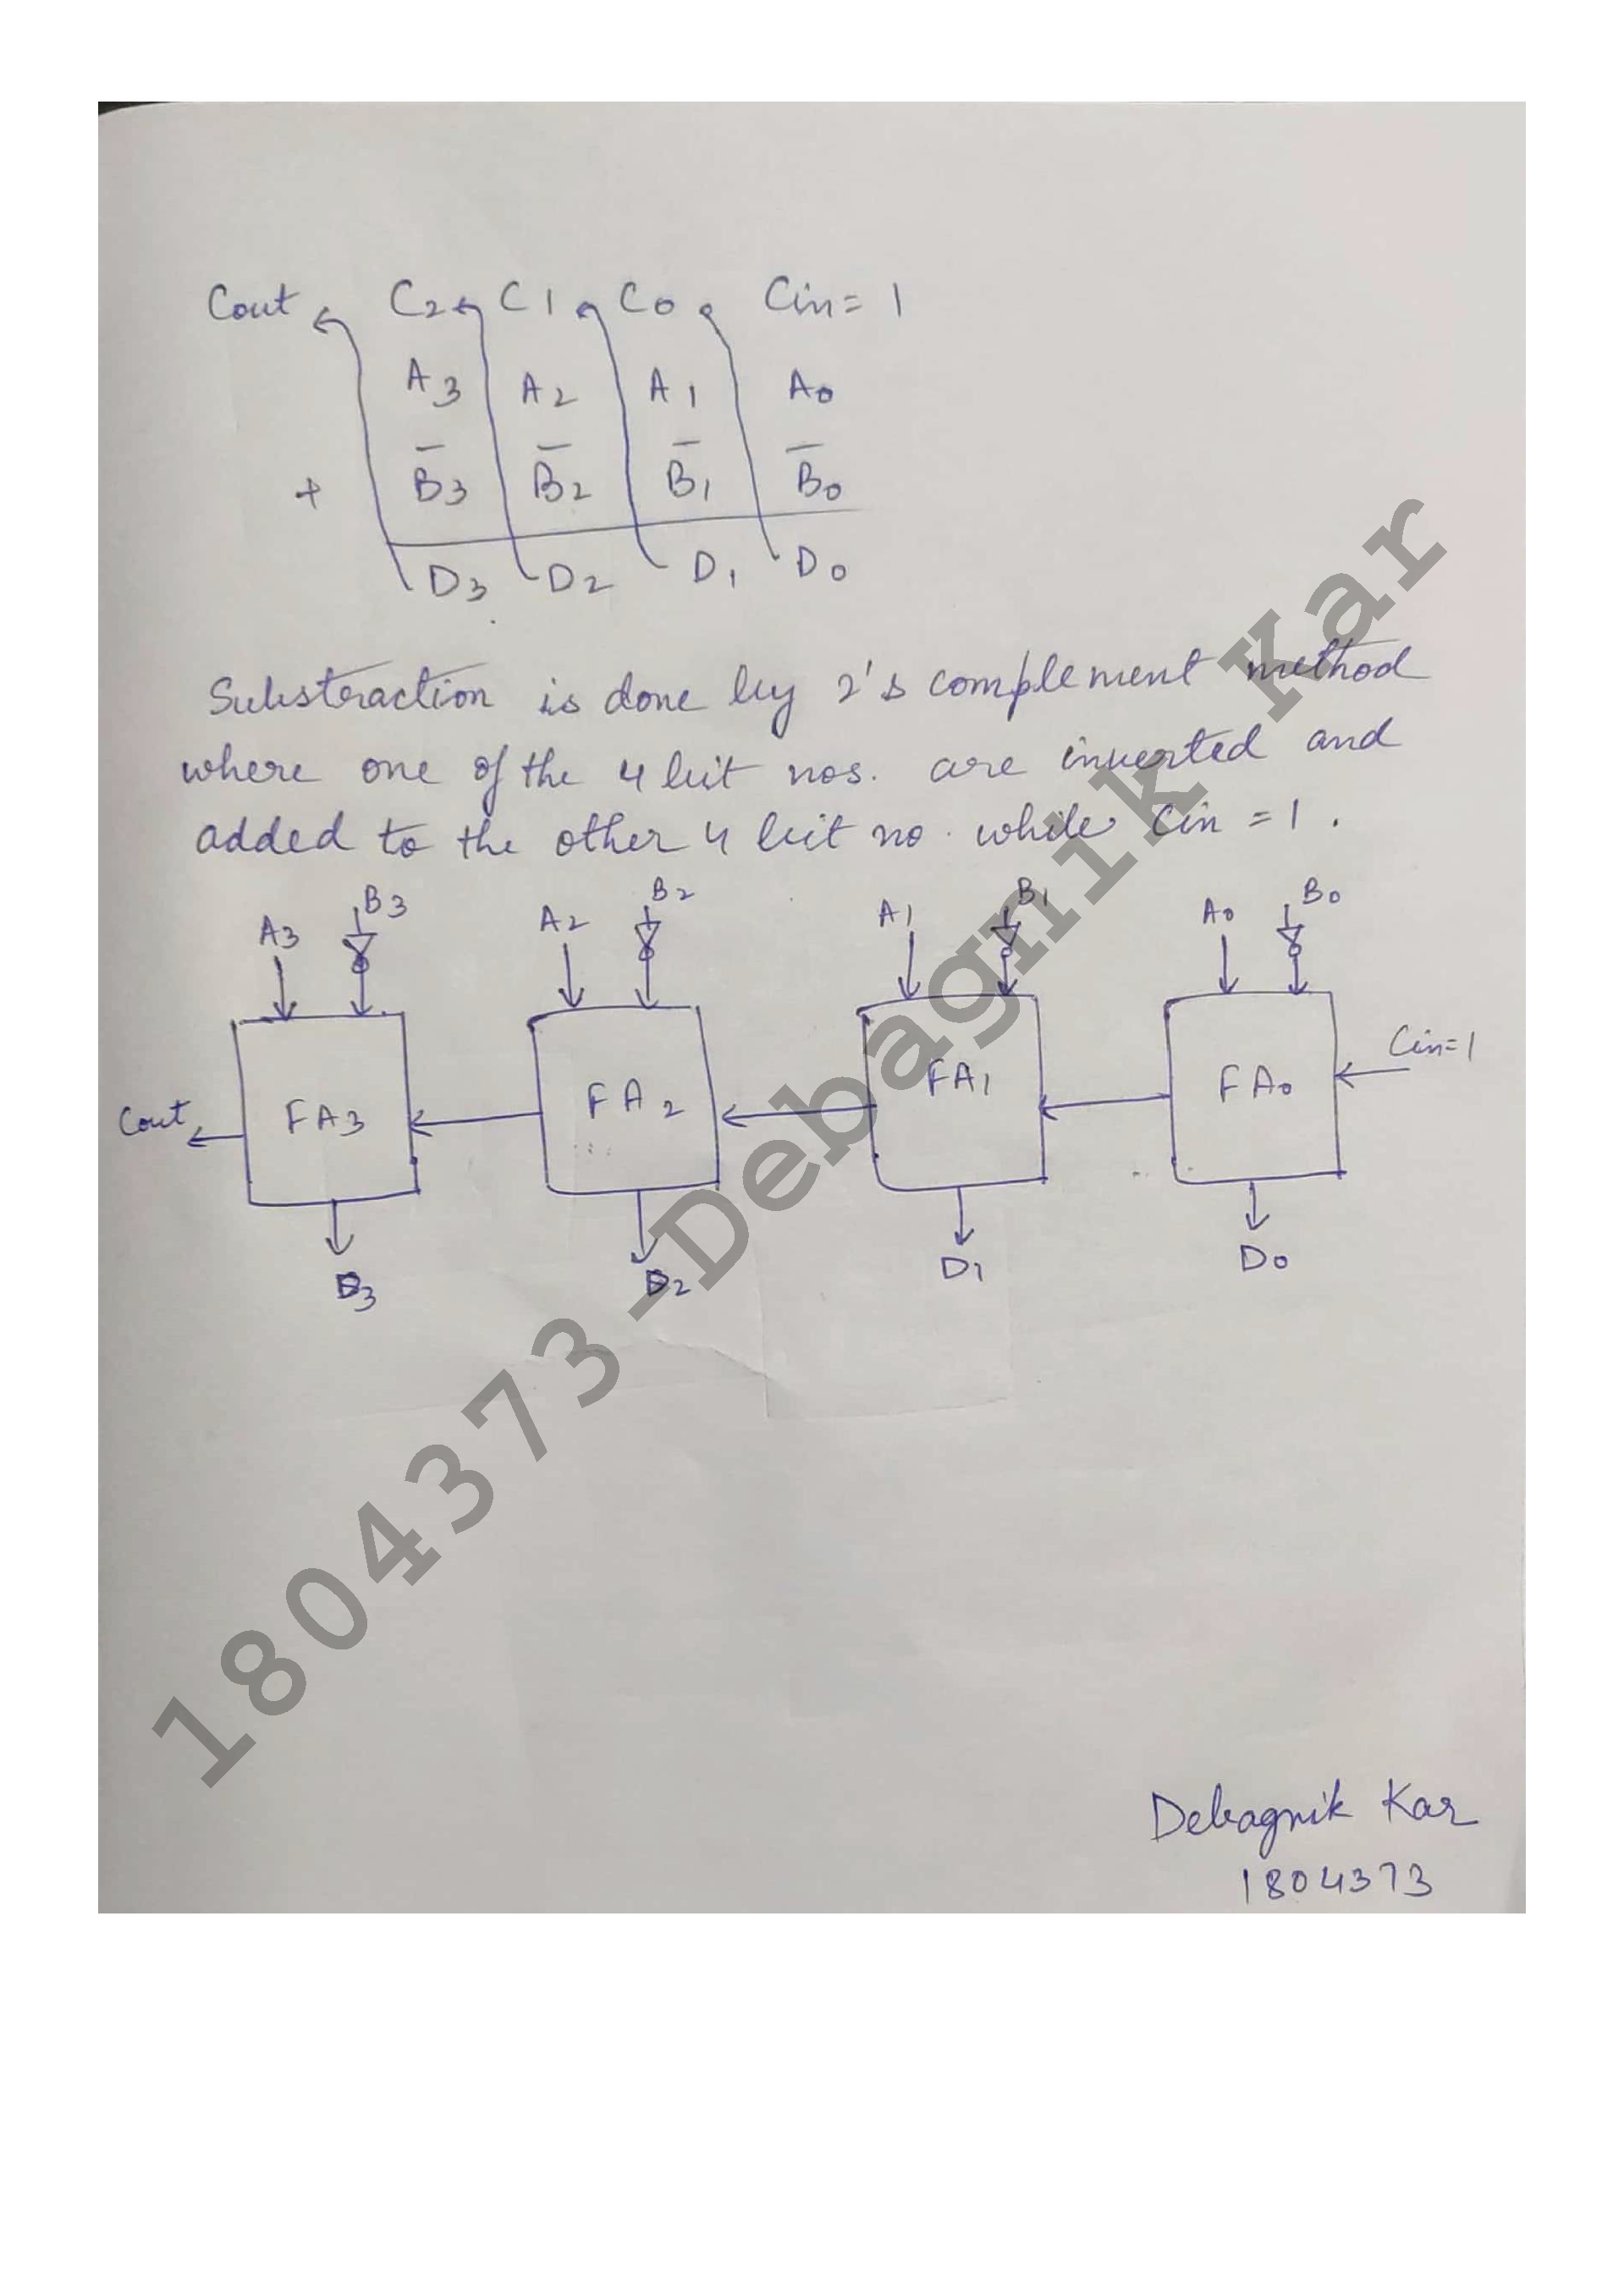 Cout C2 C1 C0 Cin = 1
A3 A2 A1 A0
+ B̅3 B̅2 B̅1 B̅0
D3 D2 D1 D0
Substraction is done by 2's complement method
where one of the 4 bit nos. are inverted and
added to the other 4 bit no. while Cin = 1.
A3 B3 A2 B2 A1 B1 A0 B0
Cout FA3 FA2 FA1 FA0 Cin=1
D3 D2 D1 D0
1804373-Debagnik Kar
Debagnik Kar
1804373